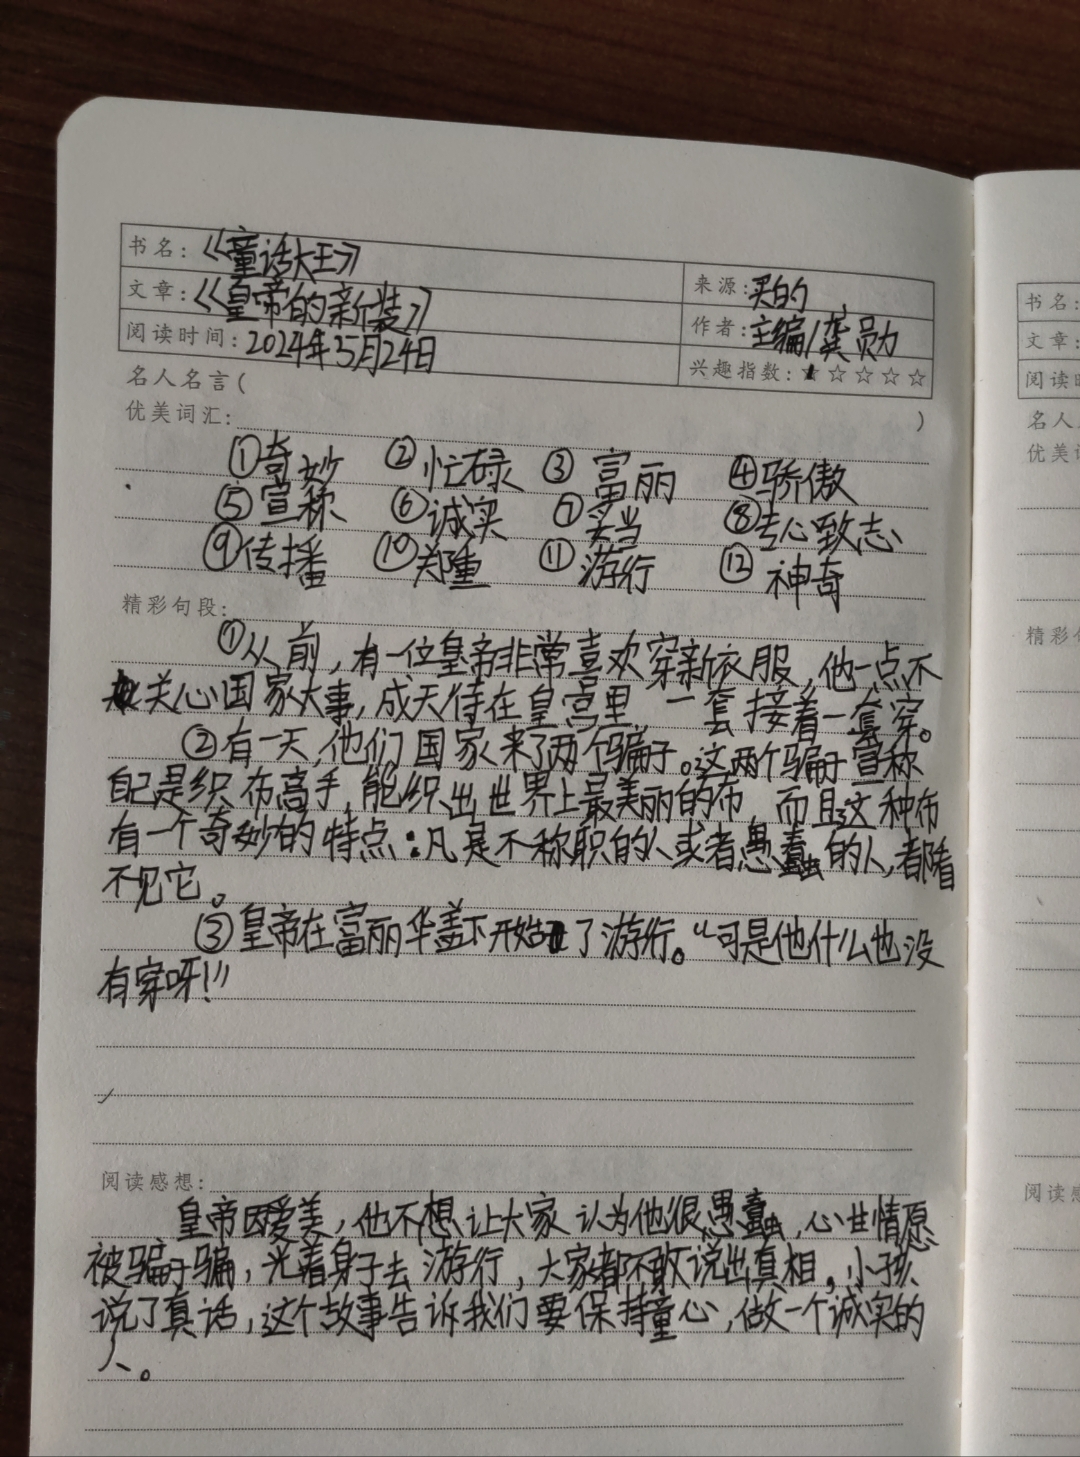 书名：《童话大王》
来源：买的
文章：《皇帝的新装》
作者：主编/龚勋
阅读时间：2024年5月24日
兴趣指数：★☆☆☆☆
名人名言( )
优美词汇：
①奇妙 ②忙碌 ③富丽 ④骄傲
⑤宣称 ⑥诚实 ⑦妥当 ⑧专心致志
⑨传播 ⑩郑重 ⑪游行 ⑫神奇
精彩句段：
①从前，有一位皇帝非常喜欢穿新衣服，他一点不
关心国家大事，成天待在皇宫里，一套接着一套穿。
②有一天，他们国家来了两个骗子。这两个骗子宣称
自己是织布高手，能织出世界上最美丽的布，而且这种布
有一个奇妙的特点：凡是不称职的人或者愚蠢的人，都看
不见它。
③皇帝在富丽华盖下开始了游行。“可是他什么也没
有穿呀！”
阅读感想：
皇帝因爱美，他不想让大家认为他很愚蠢，心甘情愿
被骗子骗，光着身子去游行，大家都不敢说出真相。小孩
说了真话，这个故事告诉我们要保持童心，做一个诚实的
人。
书名：
文章：
阅读时
名人
优美词
精彩句
阅读感